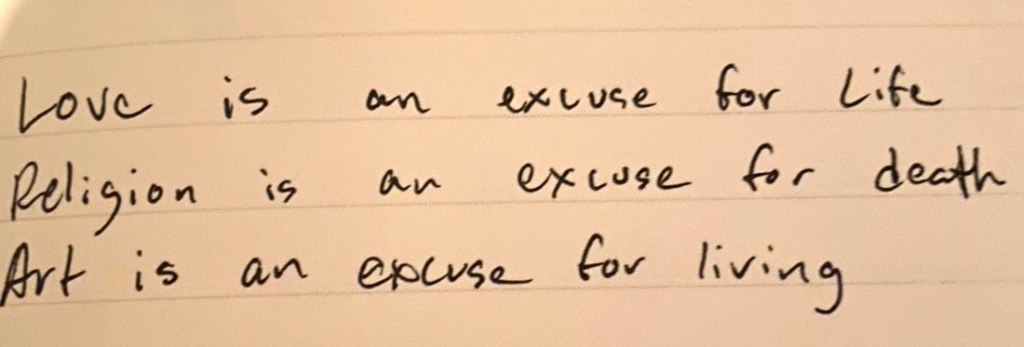 Love is an excuse for Life
Religion is an excuse for death
Art is an excuse for living